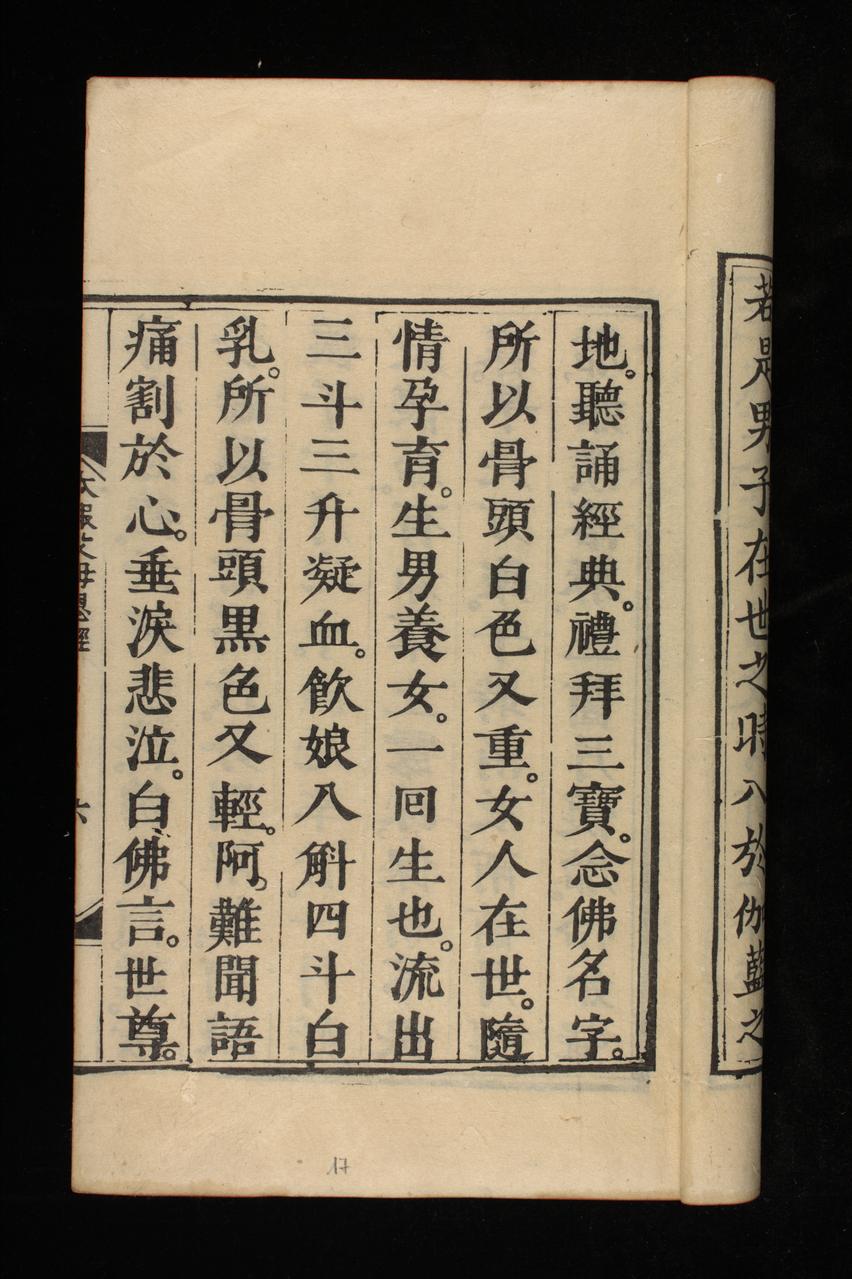 若是男子在世之時入於伽藍之
地。聽誦經典。禮拜三寶。念佛名字。
所以骨頭白色又重。女人在世。隨
情孕育。生男養女。一回生也。流出
三斗三升凝血。飲娘八斛四斗白
乳。所以骨頭黑色又輕。阿。難聞語
痛割於心。垂淚悲泣。白佛言。世尊。
大報父母恩經
六
17